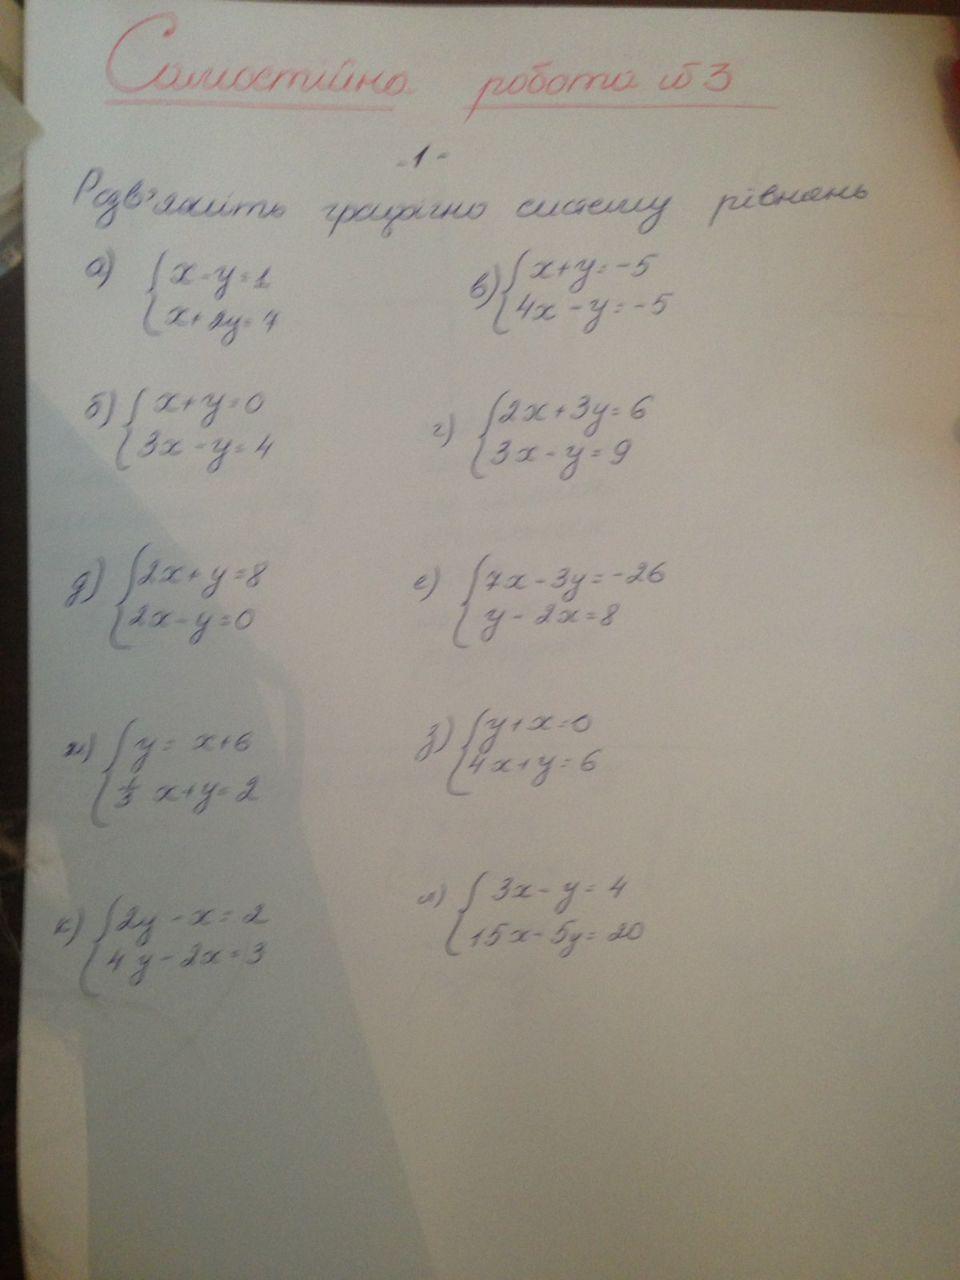 Самостійна робота № 3
- 1 -
Розв'яжіть графічно систему рівнянь
а) { x - y = 1
x + 2y = 7
в) { x + y = -5
4x - y = -5
б) { x + y = 0
3x - y = 4
г) { 2x + 3y = 6
3x - y = 9
д) { 2x + y = 8
2x - y = 0
е) { 7x - 3y = -26
y - 2x = 8
ж) { y = x + 6
1/3 x + y = 2
з) { y + x = 0
4x + y = 6
к) { 2y - x = 2
4y - 2x = 3
л) { 3x - y = 4
15x - 5y = 20